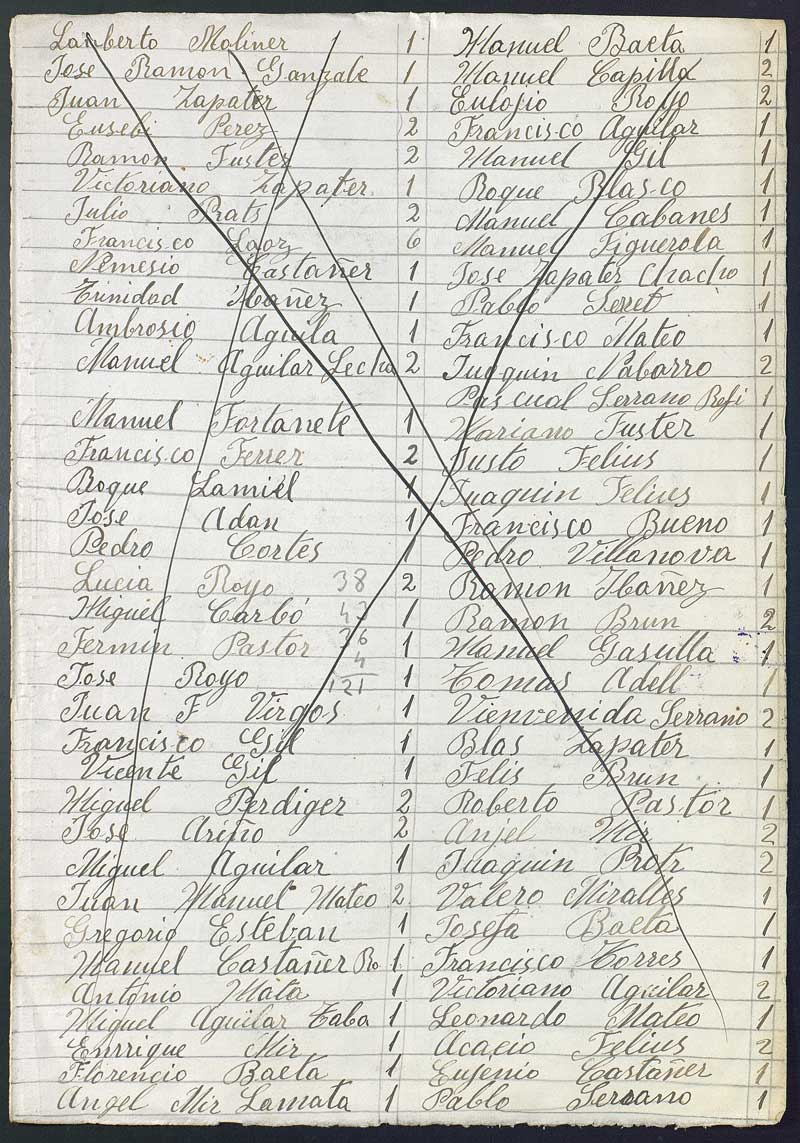 Lamberto Moliner 1
Jose Ramon Ganzale 1
Juan Zapater 1
Eusebi Perez 2
Ramon Fuster 2
Victoriano Zapater 1
Julio Prats 2
Francisco Laoz 6
Nemesio Castañer 1
Trinidad Ibañez 1
Ambrosio Aguila 1
Manuel Aguilar Lecha 2
Manuel Fortanete 1
Francisco Ferrer 2
Roque Lamiel 1
Jose Adan 1
Pedro Cortes 1
Lucia Royo 38 2
Miguel Carbó 43 1
Fermin Pastor 36 1
4
Jose Royo 121 1
Juan F Virgos 1
Francisco Gil 1
Vicente Gil 1
Miguel Perdiger 2
Jose Ariño 2
Miguel Aguilar 1
Juan Manuel Mateo 2
Gregorio Esteban 1
Manuel Castañer Ro 1
Antonio Mata 1
Miguel Aguilar Zaba 1
Enrrique Mir 1
Florencio Baeta 1
Angel Mir Lamata 1
Manuel Baeta 1
Manuel Capilla 2
Eulojio Royo 2
Francisco Aguilar 1
Manuel Gil 1
Roque Blasco 1
Manuel Cabanes 1
Manuel Figuerola 1
Jose Zapater Chacho 1
Pablo Serret 1
Francisco Mateo 1
Juaquin Nabarro 2
Pascual Serrano Refi 1
Mariano Fuster 1
Justo Felius 1
Juaquin Felius 1
Francisco Bueno 1
Pedro Villanova 1
Ramon Ibañez 1
Ramon Brun 2
Manuel Gasulla 1
Tomas Adell 1
Vienvenida Serrano 2
Blas Zapater 1
Felis Brun 1
Roberto Pastor 1
Anjel Mir 2
Juaquin Protr 2
Valero Miralles 1
Josefa Baeta 1
Francisco Torres 1
Victoriano Aguilar 2
Leonardo Mateo 1
Acacio Felius 2
Eugenio Castañer 1
Pablo Serrano 1